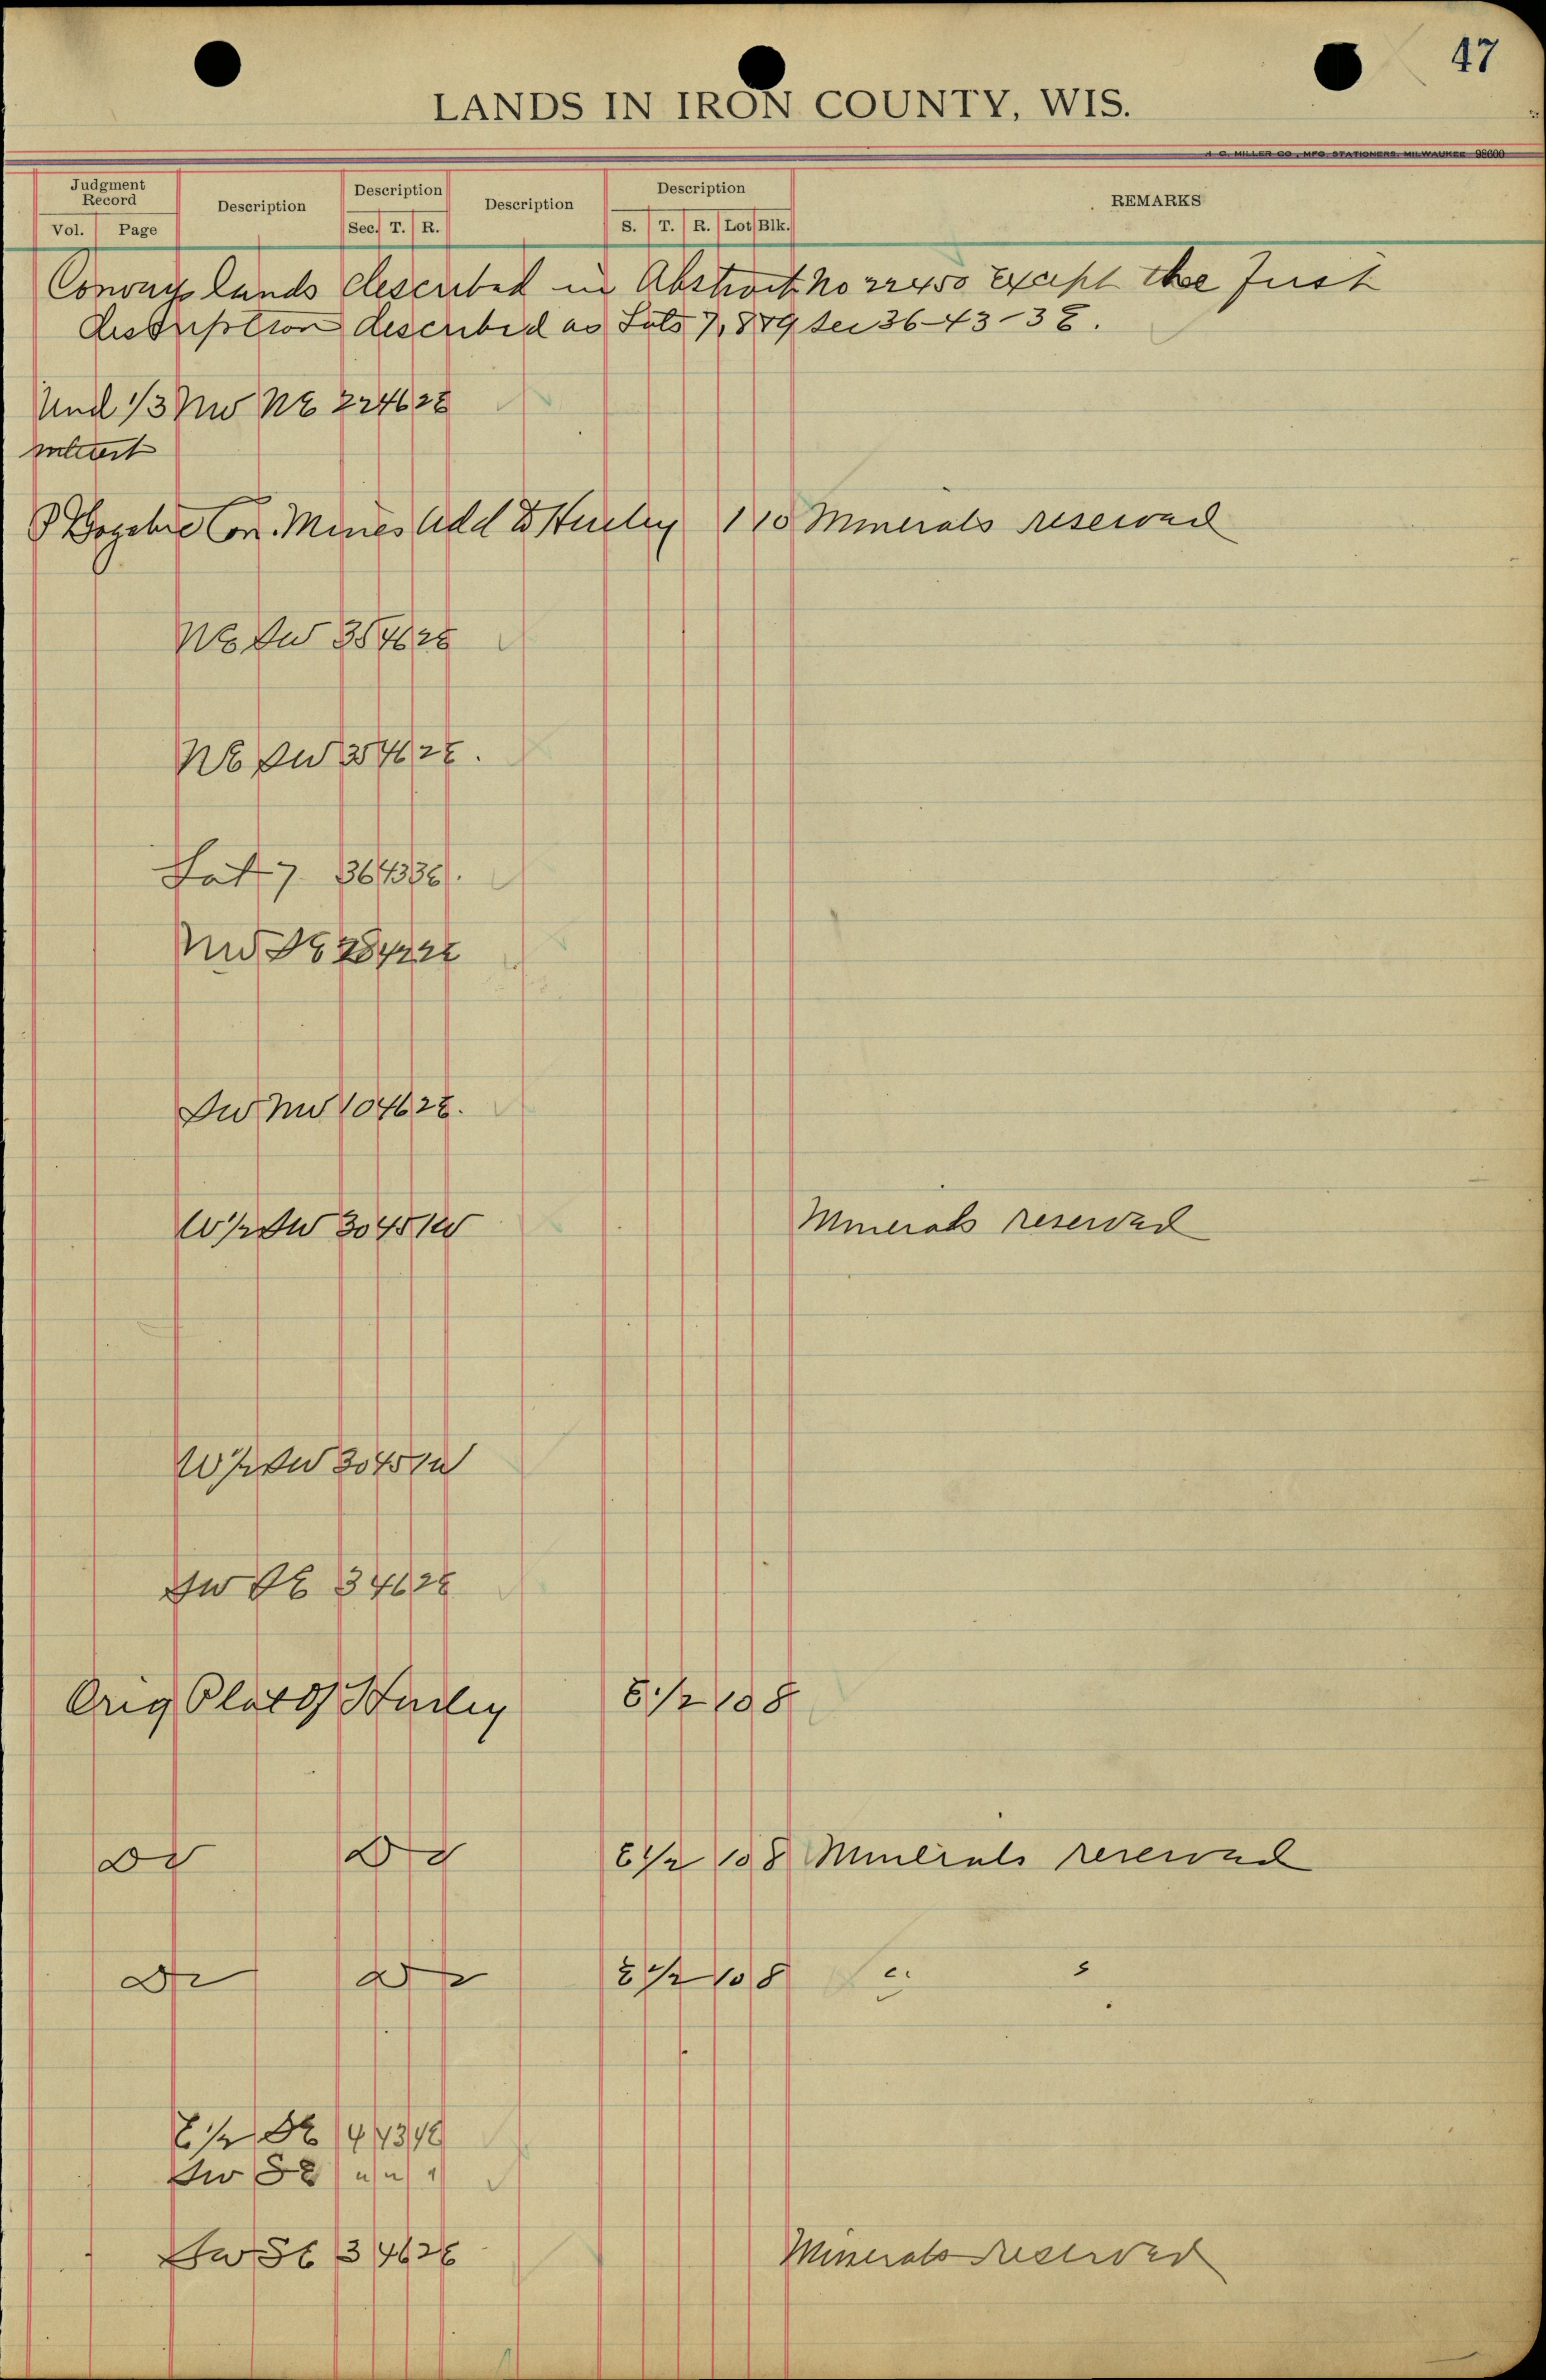 47
LANDS IN IRON COUNTY, WIS.
H. C. MILLER CO., MFG. STATIONERS, MILWAUKEE 98600
Judgment Record
Vol. Page
Description
Description
Sec. T. R.
Description
Description
S. T. R. Lot Blk.
REMARKS
Conveys lands described in Abstract No 22450 Except the first
description described as Lots 7, 8 & 9 Sec 36-43-3E.
Und 1/3 NW NE 22 46 2E
interest
Gogebic Con. Mines Add to Hurley 1 10 Minerals reserved
NE SW 35 46 2E
NE SW 35 46 2E.
Lot 7 36 43 3E.
NW SE 28 42 2E
SW NW 10 46 2E.
W 1/2 SW 30 45 1W Minerals reserved
W 1/2 SW 30 45 1W
SW SE 3 46 2E
Orig Plat of Hurley E 1/2 10 8
Do Do E 1/2 10 8 Minerals reserved
Do Do E 1/2 10 8 " "
E 1/2 SE 14 43 4E
SW SE " " "
SW SE 3 46 2E Minerals reserved